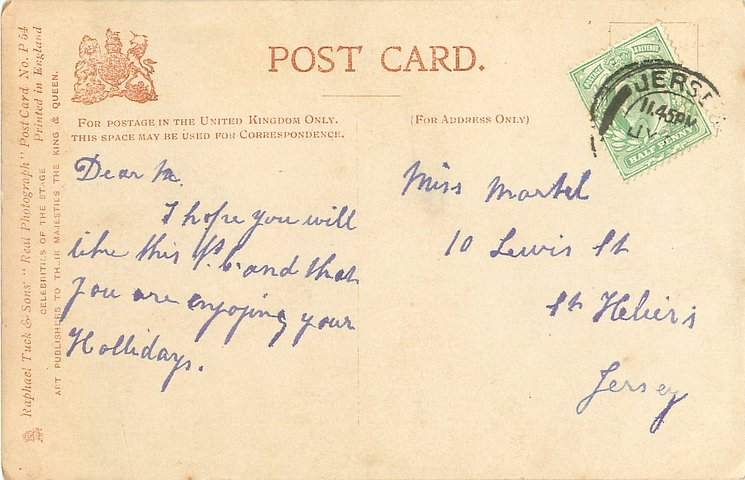 POST CARD.
FOR POSTAGE IN THE UNITED KINGDOM ONLY.
THIS SPACE MAY BE USED FOR CORRESPONDENCE.
(FOR ADDRESS ONLY)
Dear M.
I hope you will
like this P.C. and that
you are enjoying your
Hollidays.
Miss Martel
10 Lewis St
St Heliers
Jersey
POSTAGE & REVENUE
HALF PENNY
JERSE
11.45PM
Raphael Tuck & Sons' "Real Photograph" Post Card No. P 54
Printed in England
CELEBRITIES OF THE STAGE
ART PUBLISHERS TO THEIR MAJESTIES THE KING & QUEEN.